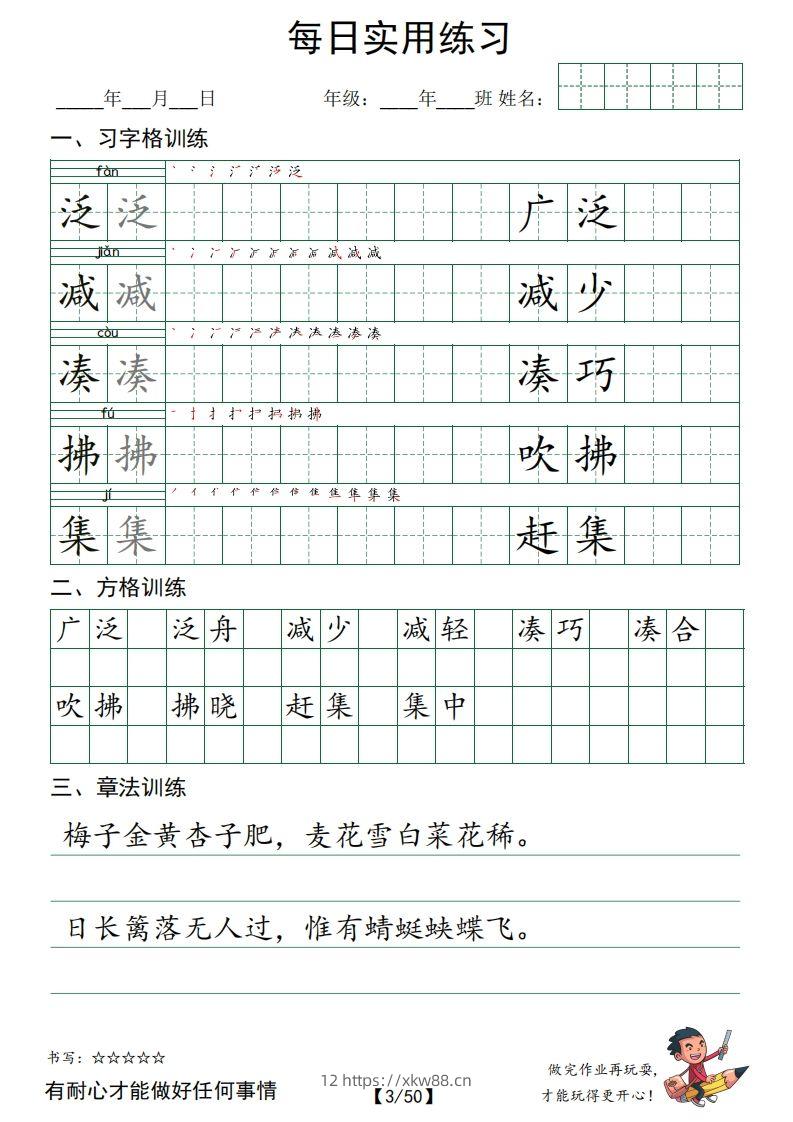 每日实用练习
_____年___月___日 年级：____年____班 姓名：
一、习字格训练
fàn
泛 泛 广 泛
jiǎn
减 减 减 少
còu
凑 凑 凑 巧
fú
拂 拂 吹 拂
jí
集 集 赶 集
二、方格训练
广泛 泛舟 减少 减轻 凑巧 凑合
吹拂 拂晓 赶集 集中
三、章法训练
梅子金黄杏子肥，麦花雪白菜花稀。
日长篱落无人过，惟有蜻蜓蛱蝶飞。
书写：☆☆☆☆☆
有耐心才能做好任何事情
12 https://xkw88.cn
【3/50】
做完作业再玩耍，
才能玩得更开心！